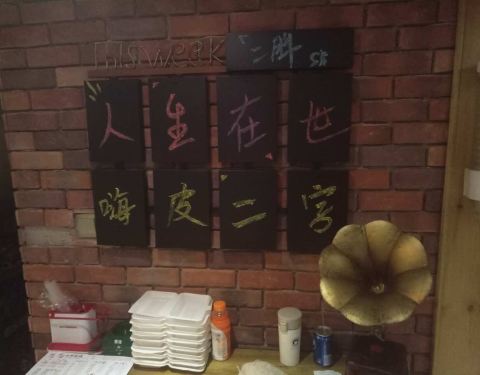 THIS WEEK 二胖
人生在世
嗨皮二字